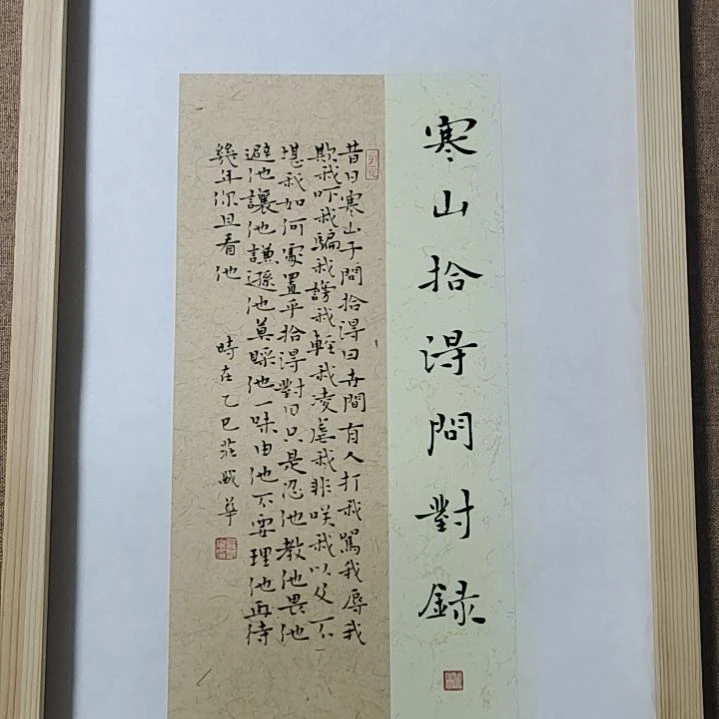 寒山拾得問對錄
昔日寒山子問拾得曰世間有人打我罵我辱我
欺我吓我騙我謗我輕我凌虐我非咲我以及不
堪我如何處置乎拾得對曰只是忍他教他畏他
避他讓他謙遜他莫睬他一味由他不要理他再待
幾年你且看他
時在乙巳莊 華